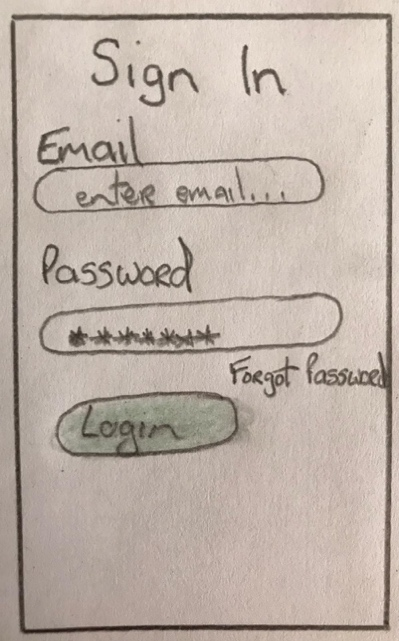 Sign In
Email
enter email...
Password
*******
Forgot Password
Login